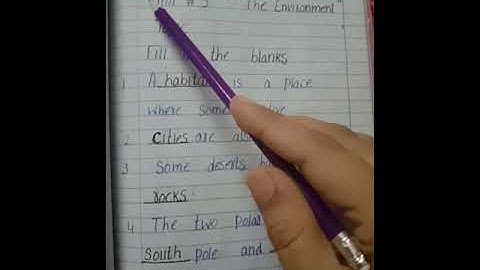 # 3 "The Environment"
Fill the blanks
1 A habitat is a place
where some
2 Cities are
3 Some deserts
rocks.
4 The two
South pole and